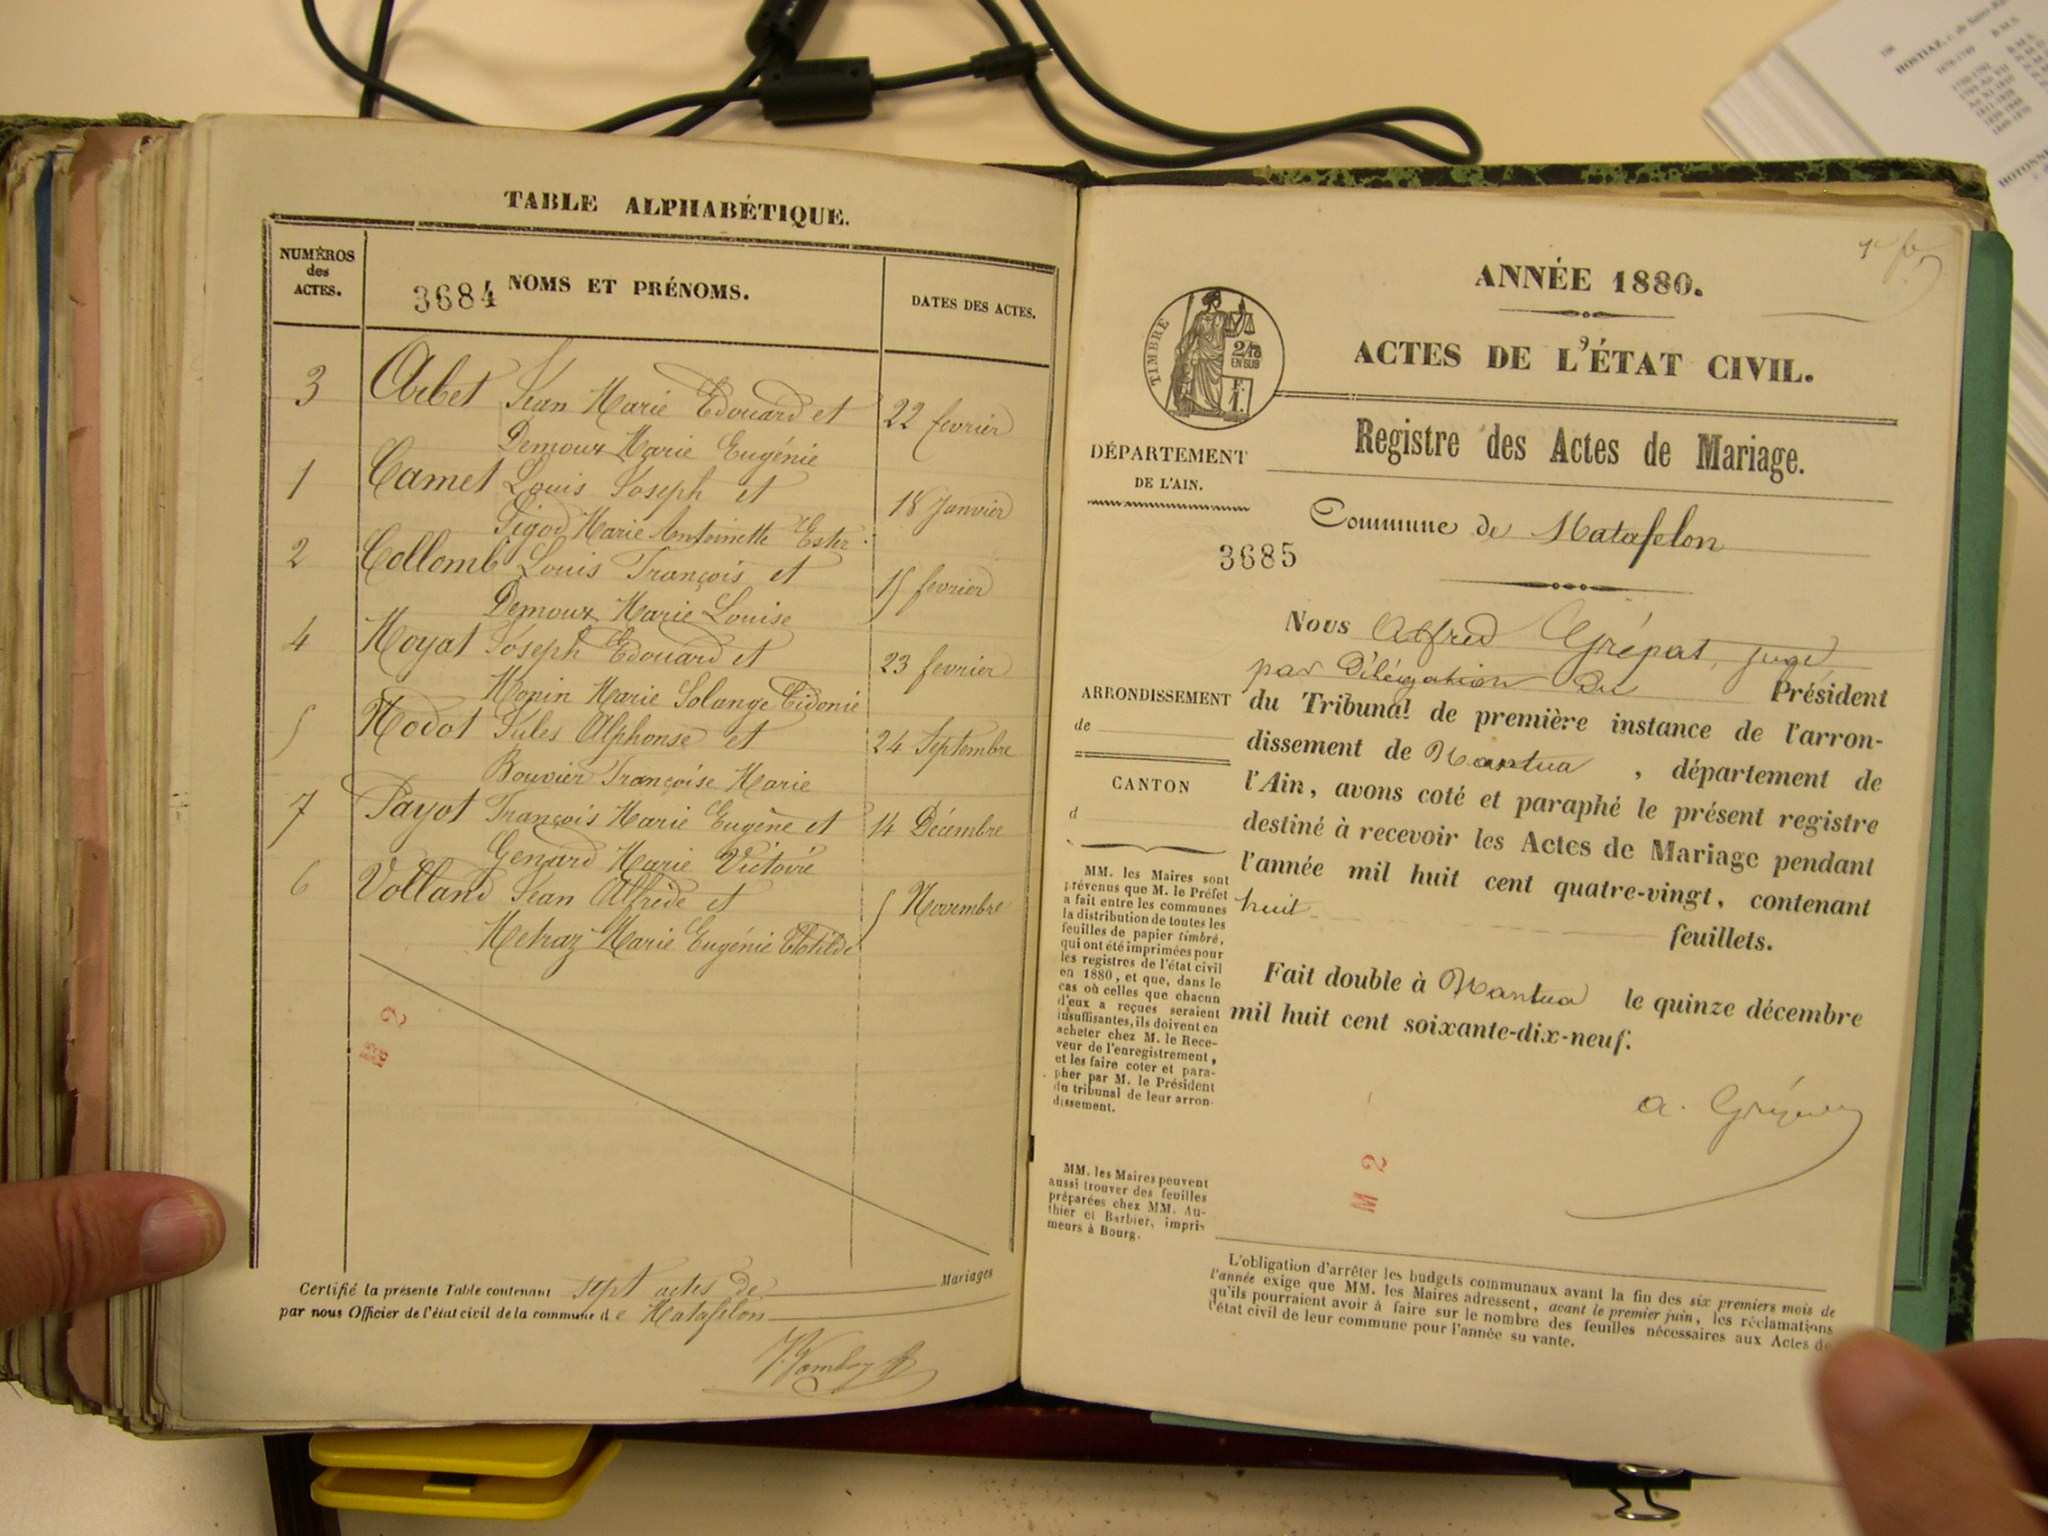 TABLE ALPHABÉTIQUE.
NUMÉROS
des
ACTES.
3684 NOMS ET PRÉNOMS.
DATES DES ACTES.
3 Arbet Jean Marie Edouard et 22 fevrier
Demoux Marie Eugénie
1 Camet Louis Joseph et 18 Janvier
Pigod Marie Antoinette Ester
2 Collomb Louis François et 15 fevrier
Demoux Marie Louise
4 Moyat Joseph Edouard et 23 fevrier
Monin Marie Solange Cidonie
5 Nodot Jules Alphonse et 24 Septembre
Bouvier Françoise Marie
7 Payot François Marie Eugène et 14 Décembre
Genard Marie Victoire
6 Volland Jean Alfrède et 5 Novembre
Metraz Marie Eugénie Clotilde
M 2
Certifié la présente Table contenant sept actes de Mariages
par nous Officier de l'état civil de la commune de Matafelon
ANNÉE 1880.
ACTES DE L'ÉTAT CIVIL.
TIMBRE
2/10
EN SUS
Registre des Actes de Mariage.
DÉPARTEMENT
DE L'AIN.
Commune de Matafelon
3685
Nous Alfred Grépat, juge
par Délégation du Président
du Tribunal de première instance de l'arron-
dissement de Nantua , département de
l'Ain, avons coté et paraphé le présent registre
destiné à recevoir les Actes de Mariage pendant
l'année mil huit cent quatre-vingt, contenant
huit feuillets.
Fait double à Nantua le quinze décembre
mil huit cent soixante-dix-neuf.
ARRONDISSEMENT
de
CANTON
d
MM. les Maires sont
prévenus que M. le Préfet
a fait entre les communes
la distribution de toutes les
feuilles de papier timbré,
qui ont été imprimées pour
les registres de l'état civil
en 1880, et que, dans le
cas où celles que chacun
d'eux a reçues seraient
insuffisantes, ils doivent en
acheter chez M. le Rece-
veur de l'enregistrement,
et les faire coter et para-
pher par M. le Président
du tribunal de leur arron-
dissement.
MM. les Maires peuvent
aussi trouver des feuilles
préparées chez MM. Au-
thier et Barbier, impri-
meurs à Bourg.
M 2
L'obligation d'arrêter les budgets communaux avant la fin des six premiers mois de
l'année exige que MM. les Maires adressent, avant le premier juin, les réclamations
qu'ils pourraient avoir à faire sur le nombre des feuilles nécessaires aux Actes de
l'état civil de leur commune pour l'année su vante.
HOSTIAZ,